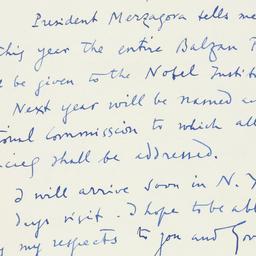 President Merzagora tells me
this year the entire Balzan P
be given to the Nobel Instit
Next year will be named an
ional Commission to which all
ncies shall be addressed.
I will arrive soon in N. Y
days visit. I hope to be abl
my respects to you and Gov